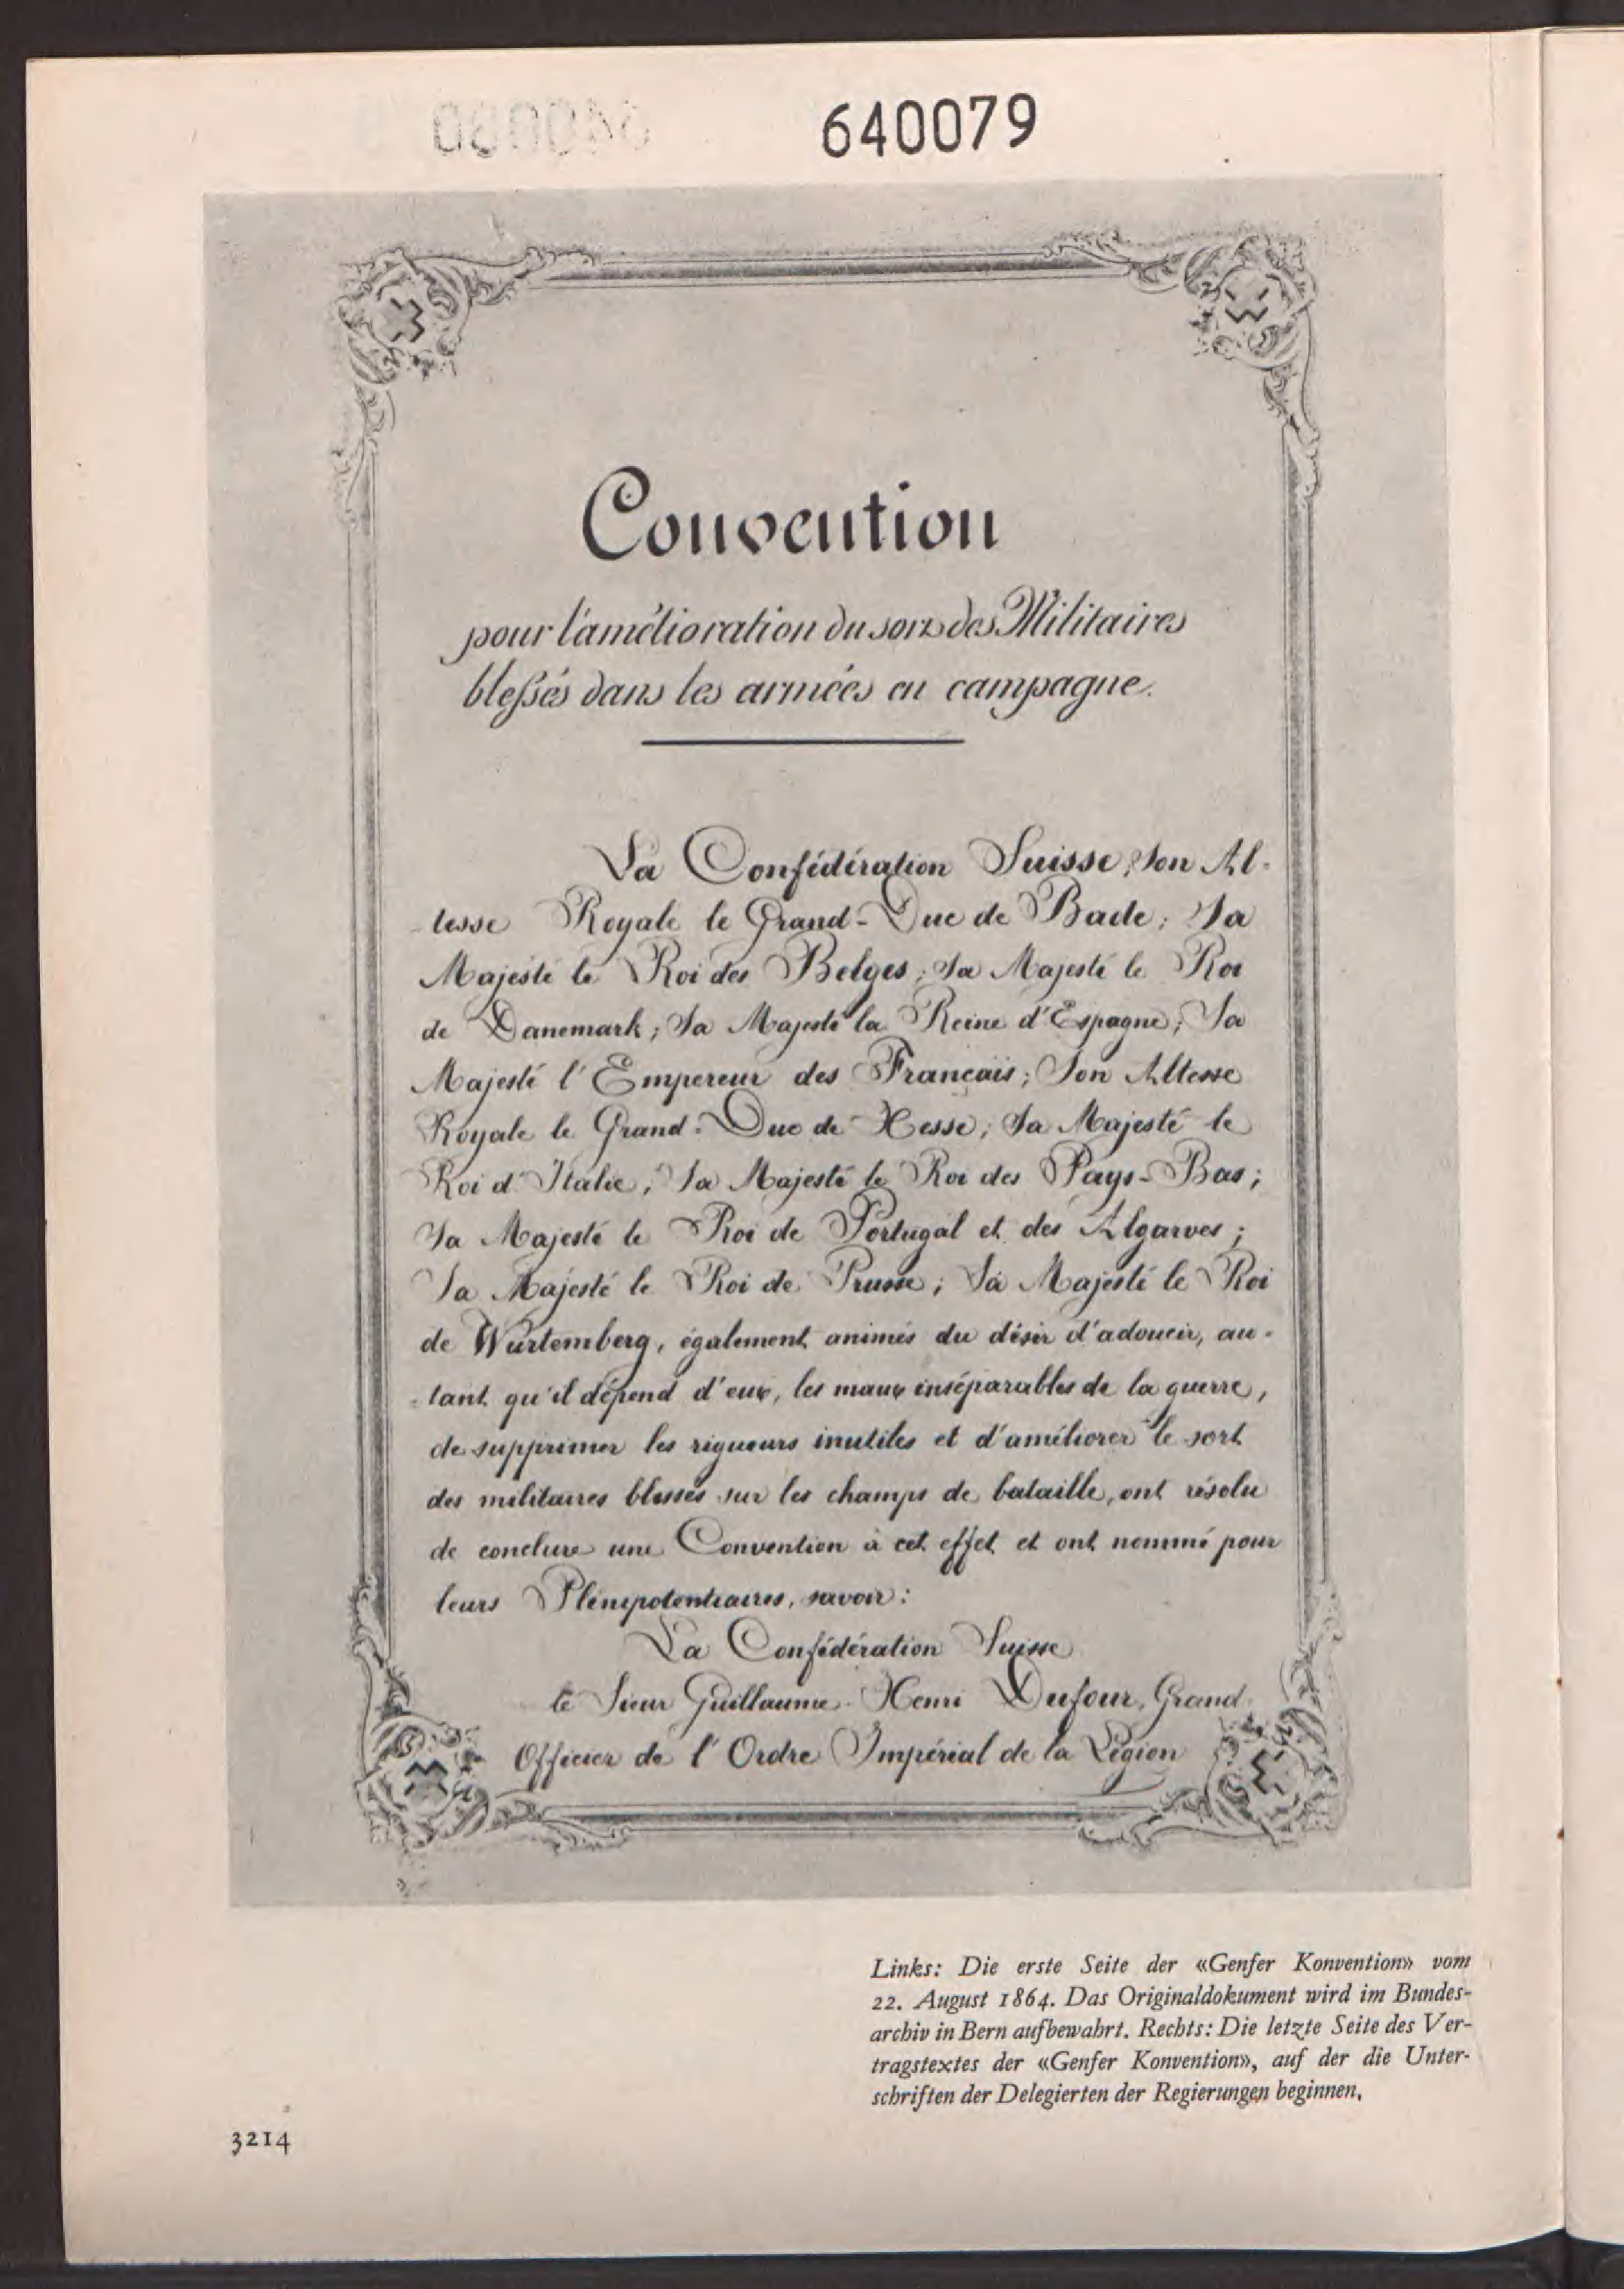 640079
Convention
pour l'amélioration du sort des Militaires
blessés dans les armées en campagne.
La Confédération Suisse; Son Al-
tesse Royale le Grand-Duc de Bade; Sa
Majesté le Roi des Belges; Sa Majesté le Roi
de Danemark; Sa Majesté la Reine d'Espagne; Sa
Majesté l'Empereur des Français; Son Altesse
Royale le Grand-Duc de Hesse; Sa Majesté le
Roi d'Italie; Sa Majesté le Roi des Pays-Bas;
Sa Majesté le Roi de Portugal et des Algarves;
Sa Majesté le Roi de Prusse; Sa Majesté le Roi
de Würtemberg, également animés du désir d'adoucir, au-
tant qu'il dépend d'eux, les maux inséparables de la guerre,
de supprimer les rigueurs inutiles et d'améliorer le sort
des militaires blessés sur les champs de bataille, ont résolu
de conclure une Convention à cet effet et ont nommé pour
leurs Plénipotentiaires, savoir:
La Confédération Suisse
le Sieur Guillaume-Henri Dufour, Grand
Officier de l'Ordre Impérial de la Légion
Links: Die erste Seite der «Genfer Konvention» vom
22. August 1864. Das Originaldokument wird im Bundes-
archiv in Bern aufbewahrt. Rechts: Die letzte Seite des Ver-
tragstextes der «Genfer Konvention», auf der die Unter-
schriften der Delegierten der Regierungen beginnen.
3214